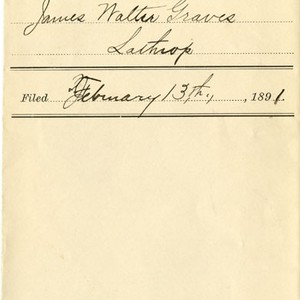 James Walter Graves
Lathrop
Filed February 13th, 1891.